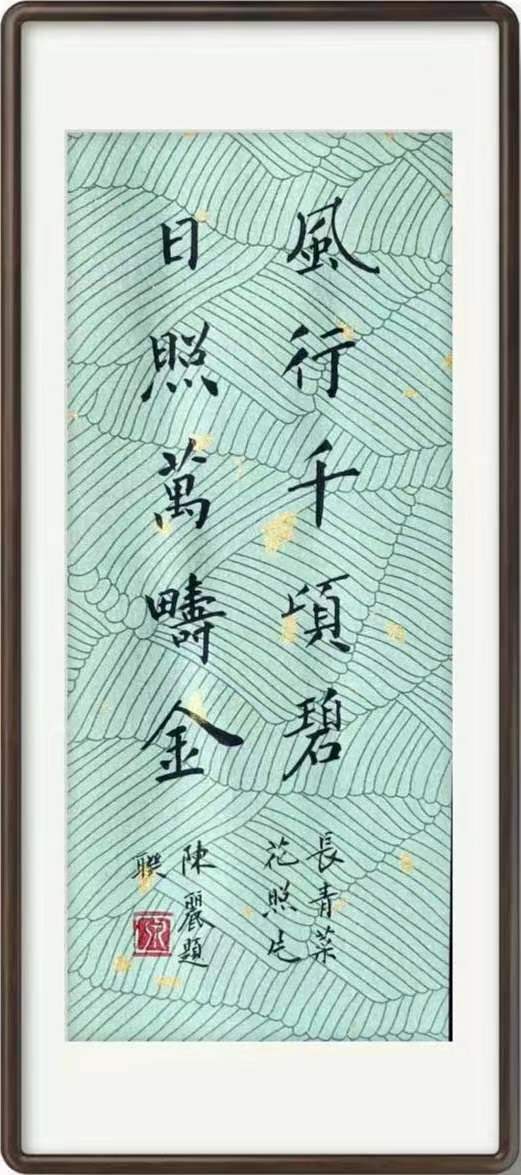 風行千頃碧
日照萬疇金
長青菜
花照片
陳麗題
聯